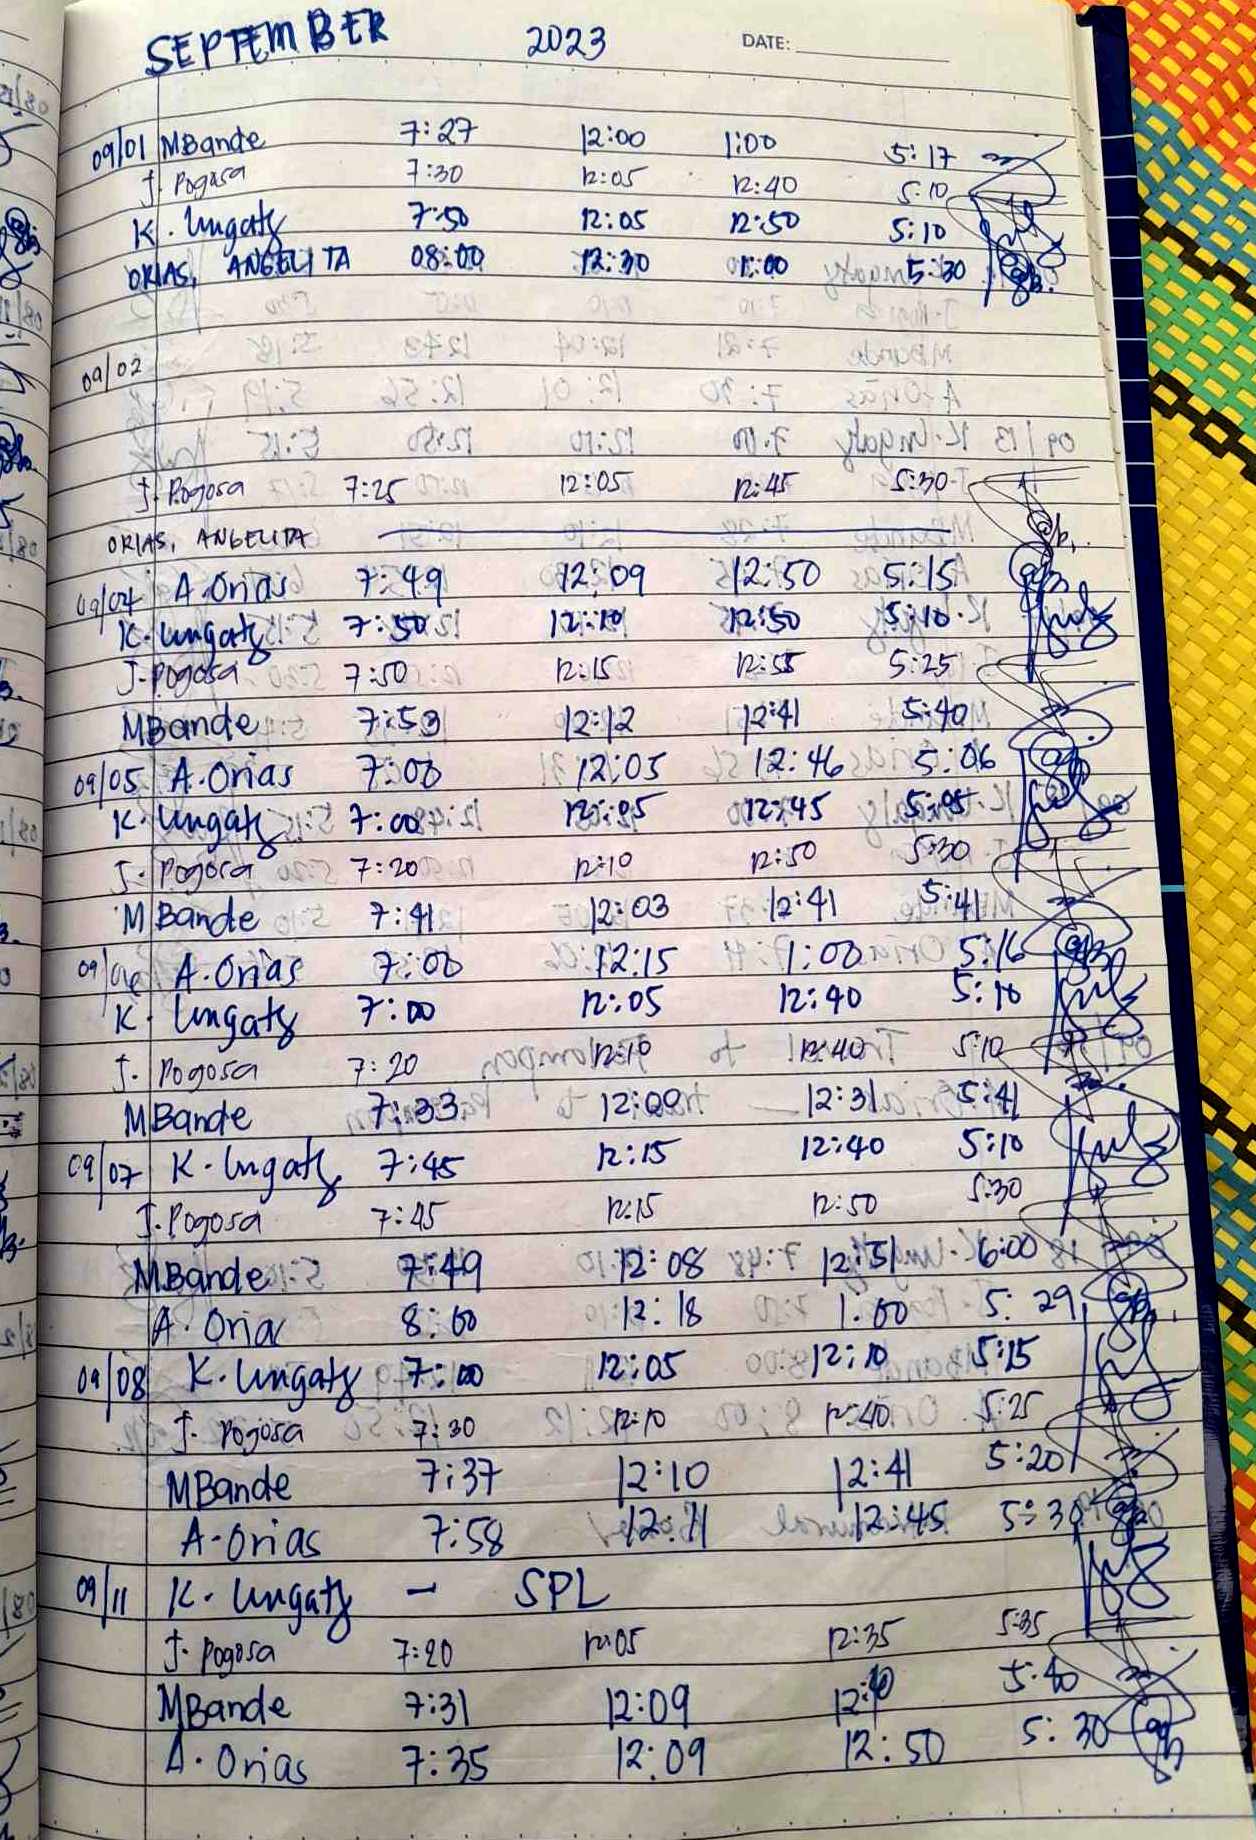 SEPTEMBER 2023 DATE:
09/01 MBande 7:27 12:00 1:00 5:17
J. Pogosa 7:30 12:05 12:40 5:10
K. Ungaty 7:50 12:05 12:50 5:10
ORIAS, ANGELITA 08:00 12:30 1:00 5:30
09/02
J. Pogosa 7:25 12:05 12:45 5:30
ORIAS, ANGELITA
09/04 A. Orias 7:49 12:09 12:50 5:15
K. Ungaty 7:50 12:10 12:50 5:10
J. Pogosa 7:50 12:15 12:55 5:25
MBande 7:59 12:12 12:41 5:40
09/05 A. Orias 7:00 12:05 12:46 5:06
K. Ungaty 7:00 12:05 12:45 5:05
J. Pogosa 7:20 12:10 12:50 5:30
MBande 7:41 12:03 12:41 5:41
09/06 A. Orias 7:00 12:15 1:00 5:16
K. Ungaty 7:00 12:05 12:40 5:10
J. Pogosa 7:20 12:10 12:40 5:10
MBande 7:33 12:09 12:31 5:41
09/07 K. Ungaty 7:45 12:15 12:40 5:10
J. Pogosa 7:45 12:15 12:50 5:30
MBande 7:49 12:08 12:31 6:00
A. Oria 8:00 12:18 1:00 5:29
09/08 K. Ungaty 7:00 12:05 12:10 5:15
J. Pogosa 7:30 12:10 12:40 5:25
MBande 7:37 12:10 12:41 5:20
A. Orias 7:58 12:11 12:45 5:30
09/11 K. Ungaty - SPL
J. Pogosa 7:20 12:05 12:35 5:35
MBande 7:31 12:09 12:40 5:40
A. Orias 7:35 12:09 12:50 5:30